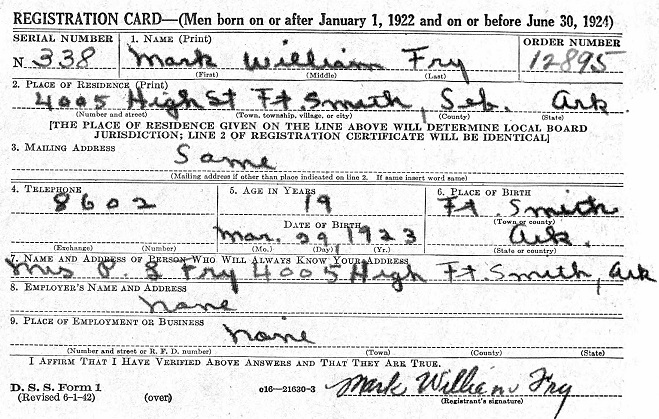 REGISTRATION CARD—(Men born on or after January 1, 1922 and on or before June 30, 1924)
SERIAL NUMBER 1. NAME (Print) ORDER NUMBER
N 338 Mark William Fry 12895
(First) (Middle) (Last)
2. PLACE OF RESIDENCE (Print)
4005 High St Ft. Smith, Seb. Ark.
(Number and street) (Town, township, village, or city) (County) (State)
[THE PLACE OF RESIDENCE GIVEN ON THE LINE ABOVE WILL DETERMINE LOCAL BOARD
JURISDICTION; LINE 2 OF REGISTRATION CERTIFICATE WILL BE IDENTICAL]
3. MAILING ADDRESS
Same
(Mailing address if other than place indicated on line 2. If same insert word same)
4. TELEPHONE 5. AGE IN YEARS 6. PLACE OF BIRTH
8602 19 Ft. Smith
(Town or county)
DATE OF BIRTH
Mar. 29 1923 Ark.
(Exchange) (Number) (Mo.) (Day) (Yr.) (State or country)
7. NAME AND ADDRESS OF PERSON WHO WILL ALWAYS KNOW YOUR ADDRESS
Mrs P. Fry 4005 High Ft. Smith, Ark
8. EMPLOYER'S NAME AND ADDRESS
none
9. PLACE OF EMPLOYMENT OR BUSINESS
none
(Number and street or R. F. D. number) (Town) (County) (State)
I AFFIRM THAT I HAVE VERIFIED ABOVE ANSWERS AND THAT THEY ARE TRUE.
D. S. S. Form 1
(Revised 6-1-42) (over) c16—21630-3 Mark William Fry
(Registrant's signature)